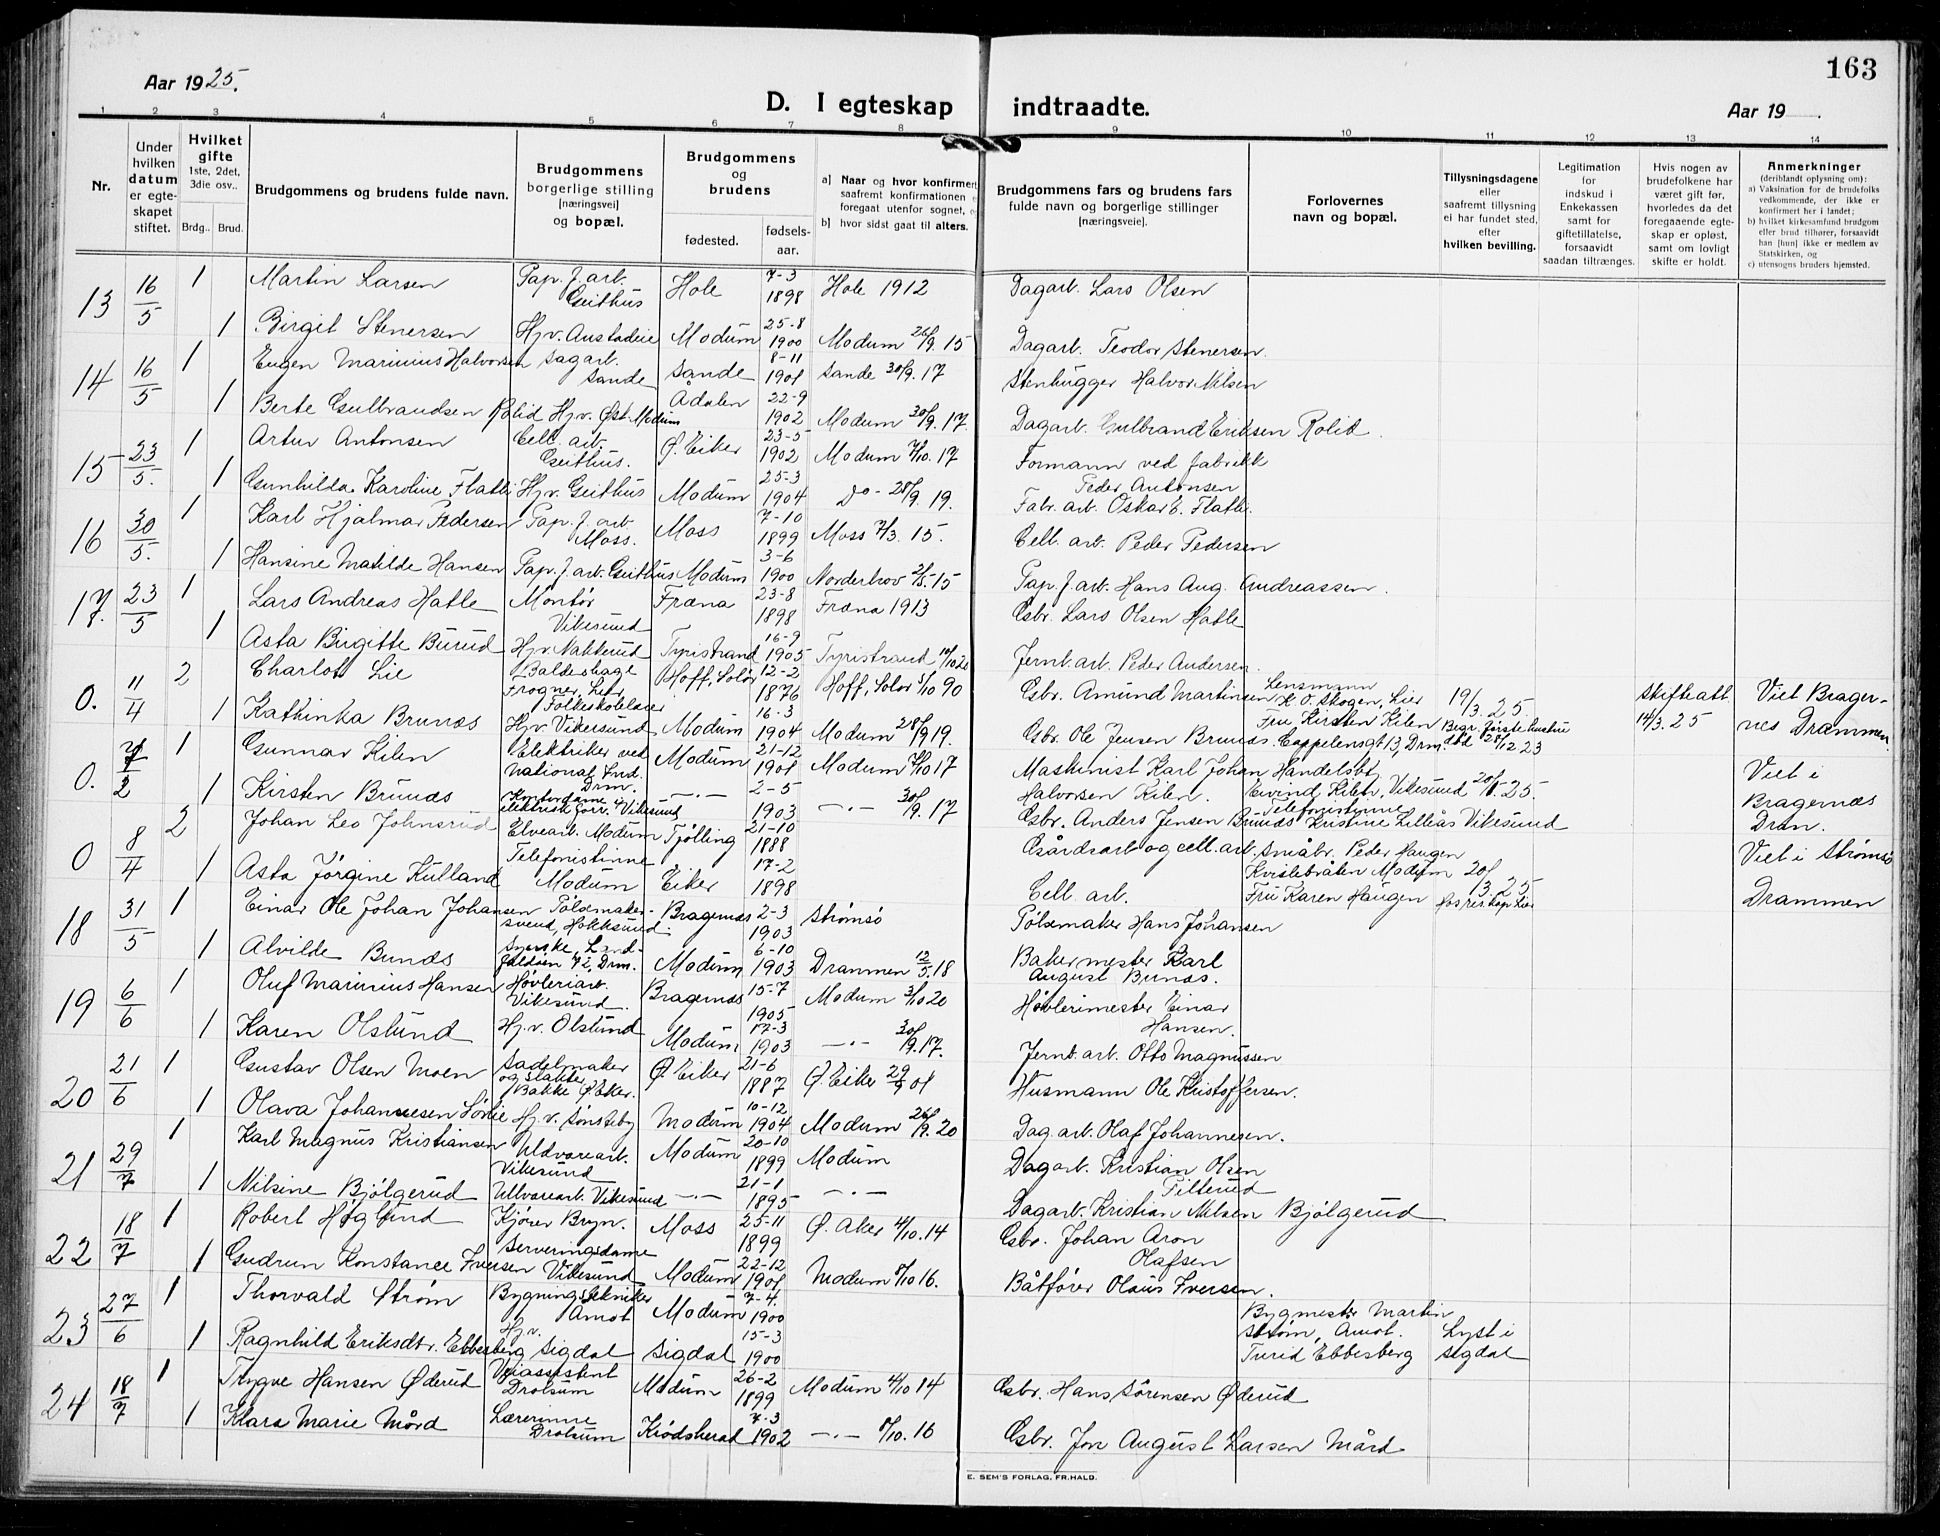 163
Aar 1925.
D. I egteskap indtraadte.
Aar 19 .
1 2 3 4 5 6 7 8 9 10 11 12 13 14
Nr.
Under hvilken datum er egteskapet stiftet.
Hvilket gifte 1ste, 2det, 3die osv..
Brdg.. Brud.
Brudgommens og brudens fulde navn.
Brudgommens borgerlige stilling [næringsvei] og bopæl.
Brudgommens og brudens
fødested. fødsels-aar.
a) Naar og hvor konfirmert
saafremt konfirmationen
foregaat utenfor sognet,
b) hvor sidst gaat til alters.
Brudgommens fars og brudens fars fulde navn og borgerlige stillinger [næringsveie].
Forlovernes navn og bopæl.
Tillysningsdagene eller saafremt tillysning ei har fundet sted, efter hvilken bevilling.
Legitimation for indskud i Enkekassen samt for giftetillatelse, forsaavidt saadan tiltrænges.
Hvis nogen av brudefolkene har været gift før, hvorledes da det foregaaende egteskap er opløst, samt om lovligt skifte er holdt.
Anmerkninger
(deriblandt oplysning om):
a) Vaksination for de brudefolks vedkommende, der ikke er konfirmert her i landet;
b) hvilket kirkesamfund brudgom eller brud tilhører, forsaavidt han [hun] ikke er medlem av Statskirken, og
c) utensogns bruders hjemsted.
13 16/5 1 Martin Larsen Pap. f. art. Geithus Hole 7-3 1898 Hole 1912 Dagarb. Lars Olsen
1 Birgit Stenersen Hj.v. Modum 25-8 1900 Modum 26/9. 15 Dagarb. Teodor Stenersen.
14 16/5 1 Eugen Marinius Halvorsen Sagarb. Sande Sande 8-11 1901 Sande 30/9. 17 Stenhugger Halvor Nilsen
1 Berte Gulbrandsen Rolid Hj.v. Øst-Modum Ådalen 22-9 1902 Modum 30/9. 17. Dagarb. Gulbrand Eriksen Rolid.
15 23/5. 1 Artur Antonsen Cell. arb. Geithus. Ø. Eiker 23-5 1902 Modum 7/10. 17 Formann ved fabrikk Peder Antonsen
1 Gunhilda Karoline Flatli Hj.v. Geithus Modum 25-3 1904 Do - 28/9. 19. Fabr. arb. Oskar E. Flatli.
16 30/5. 1 Karl Hjalmar Pedersen Pap. f. arb. Moss. Moss 7-10 1899 Moss 7/3. 15. Cell. arb. Peder Pedersen
1 Hansine Matilde Hansen Pap. f. arb. Geithus Modum 3-6 1900 Norderhov 2/5. 15 Pap. f. arb. Hans Aug. Andreassen.
17. 23/5 1 Lars Andreas Hatle Montør Vikesund Fræna 23-8 1898 Fræna 1913 Gsbr. Lars Olsen Hatle
1 Asta Birgitte Burud Hj.v. Nakkerud Tyristrand 16-9 1905 Tyristrand 10/10 20 Jernb. arb. Peder Andersen.
0. 11/4 2 Charlot Lie Baldershage Frogner, Lier, Folkeskolelærer Hoff, Solør 12-2 1876 Hoff, Solør 5/10 90 Gsbr. Amund Martinsen Lensmann K. O. Skogen, Lier 19/3. 25 Skifteatt. 14/3. 25 Viet Bragernes Drammen
1 Kathinka Brunæs Hj.v. Vikersund Modum 16-3 1904 Modum 28/9 19. Gsbr. Ole Jensen Brunæs. Fru Kirsten Kilen Cappelensgt 13, Drm. Begr. første hustru død 28/12 23
0. 7/2 1 Gunnar Kilen Elektriker ved National Ind. Drm. Modum 21-12 1901 Modum 7/10 17 Maskinist Karl Johan Halvorsen Kilen. Handelsbt. Eivind Kilen, Vikesund 20/1. 25. Viet i Bragernæs Drm.
1 Kirsten Brunæs Kontordame elektrisk forr. Vikesund -.- 2-5 1903 -.- 30/9. 17 Gsbr. Anders Jensen Brunæs Telefonistinne Kristine Lilleås Vikesund
0 8/4 2 Johan Leo Johnsrud Elvearb. Modum Tjølling 21-10 1888 Gårdsarb og cell. arb. Småbr. Peder Haugen Kvislebråten Modum 20/3. 25 Viet i Strømsø Drammen
1 Asta Jørgine Kulland Telefonistinne Modum Eiker 17-2 1898 Cell. arb. Fru Karen Haugen
18 31/5 1 Einar Ole Johan Johansen Pølsemakersvend, Hokksund. Bragernæs 2-3 1903 Strømsø Pølsemaker Hans Johansen
1 Alvilde Bunæs Modum 6-10 1903 Drammen 12/5. 18 Bakermester Karl August Bunæs.
19 6/6 1 Oluf Marinius Hansen Høvleriarb. Vikesund Bragernæs 15-7 1905 Modum 3/10 20 Høvlerimester Einar Hansen.
1 Karen Olslund Hj.v. Olslund Modum 17-3 1903 -.- 30/9. 17. Jernb. arb. Otto Magnussen
20 21/6 1 Gustav Olsen Moen Sadelmaker og slakter Bakke Ø. Eker. Ø. Eiker 21-6 1887 Ø. Eiker 29/9 01 Husmann Ole Kristoffersen.
1 Olava Johannesen Sørlie Hj.v. Sønsteby Modum 10-12 1904 Modum 26/9. 20 Dag. arb. Olaf Johannesen.
21 29/7 1 Karl Magnus Kristiansen Uldvarearb. Vikesund Modum 20-10 1899 Modum Dagarb. Kristian Olsen Tilterud
1 Nilsine Bjølgerud Ullvarearb. Vikesund -.- 21-1 1895 -.- Dagarb. Kristian Nilsen Bjølgerud
22 18/7 1 Robert Høglund Kjører Bryn. Moss 25-11 1899 Ø. Aker 4/10. 14 Gsbr. Johan Aron Olafsen
1 Gudrun Konstance Iversen Serveringsdame Vikesund Modum 22-12 1901 Modum 8/10 16. Båtfører Olaus Iversen.
23 27/6 1 Thorvald Strøm Bygningstekniker Åmot Modum 7-4. 1900 Bygmester Martin Strøm, Åmot. Lyst i Sigdal
1 Ragnhild Eriksdtr. Ebbesberg Hj.v. Sigdal Sigdal 15-3 1900 Turid Ebbesberg
24 18/7 1 Trygve Hansen Øderud Veiassistent Drolsum Modum 26-2 1899 Modum 4/10 14 Gsbr. Hans Sørensen Øderud
1 Klara Marie Mård Lærerinne Drolsum Krødsherad 7-3 1902 -.- 8/10. 16 Gsbr. Jon August Larsen Mård
E. SEM'S FORLAG, FR.HALD.